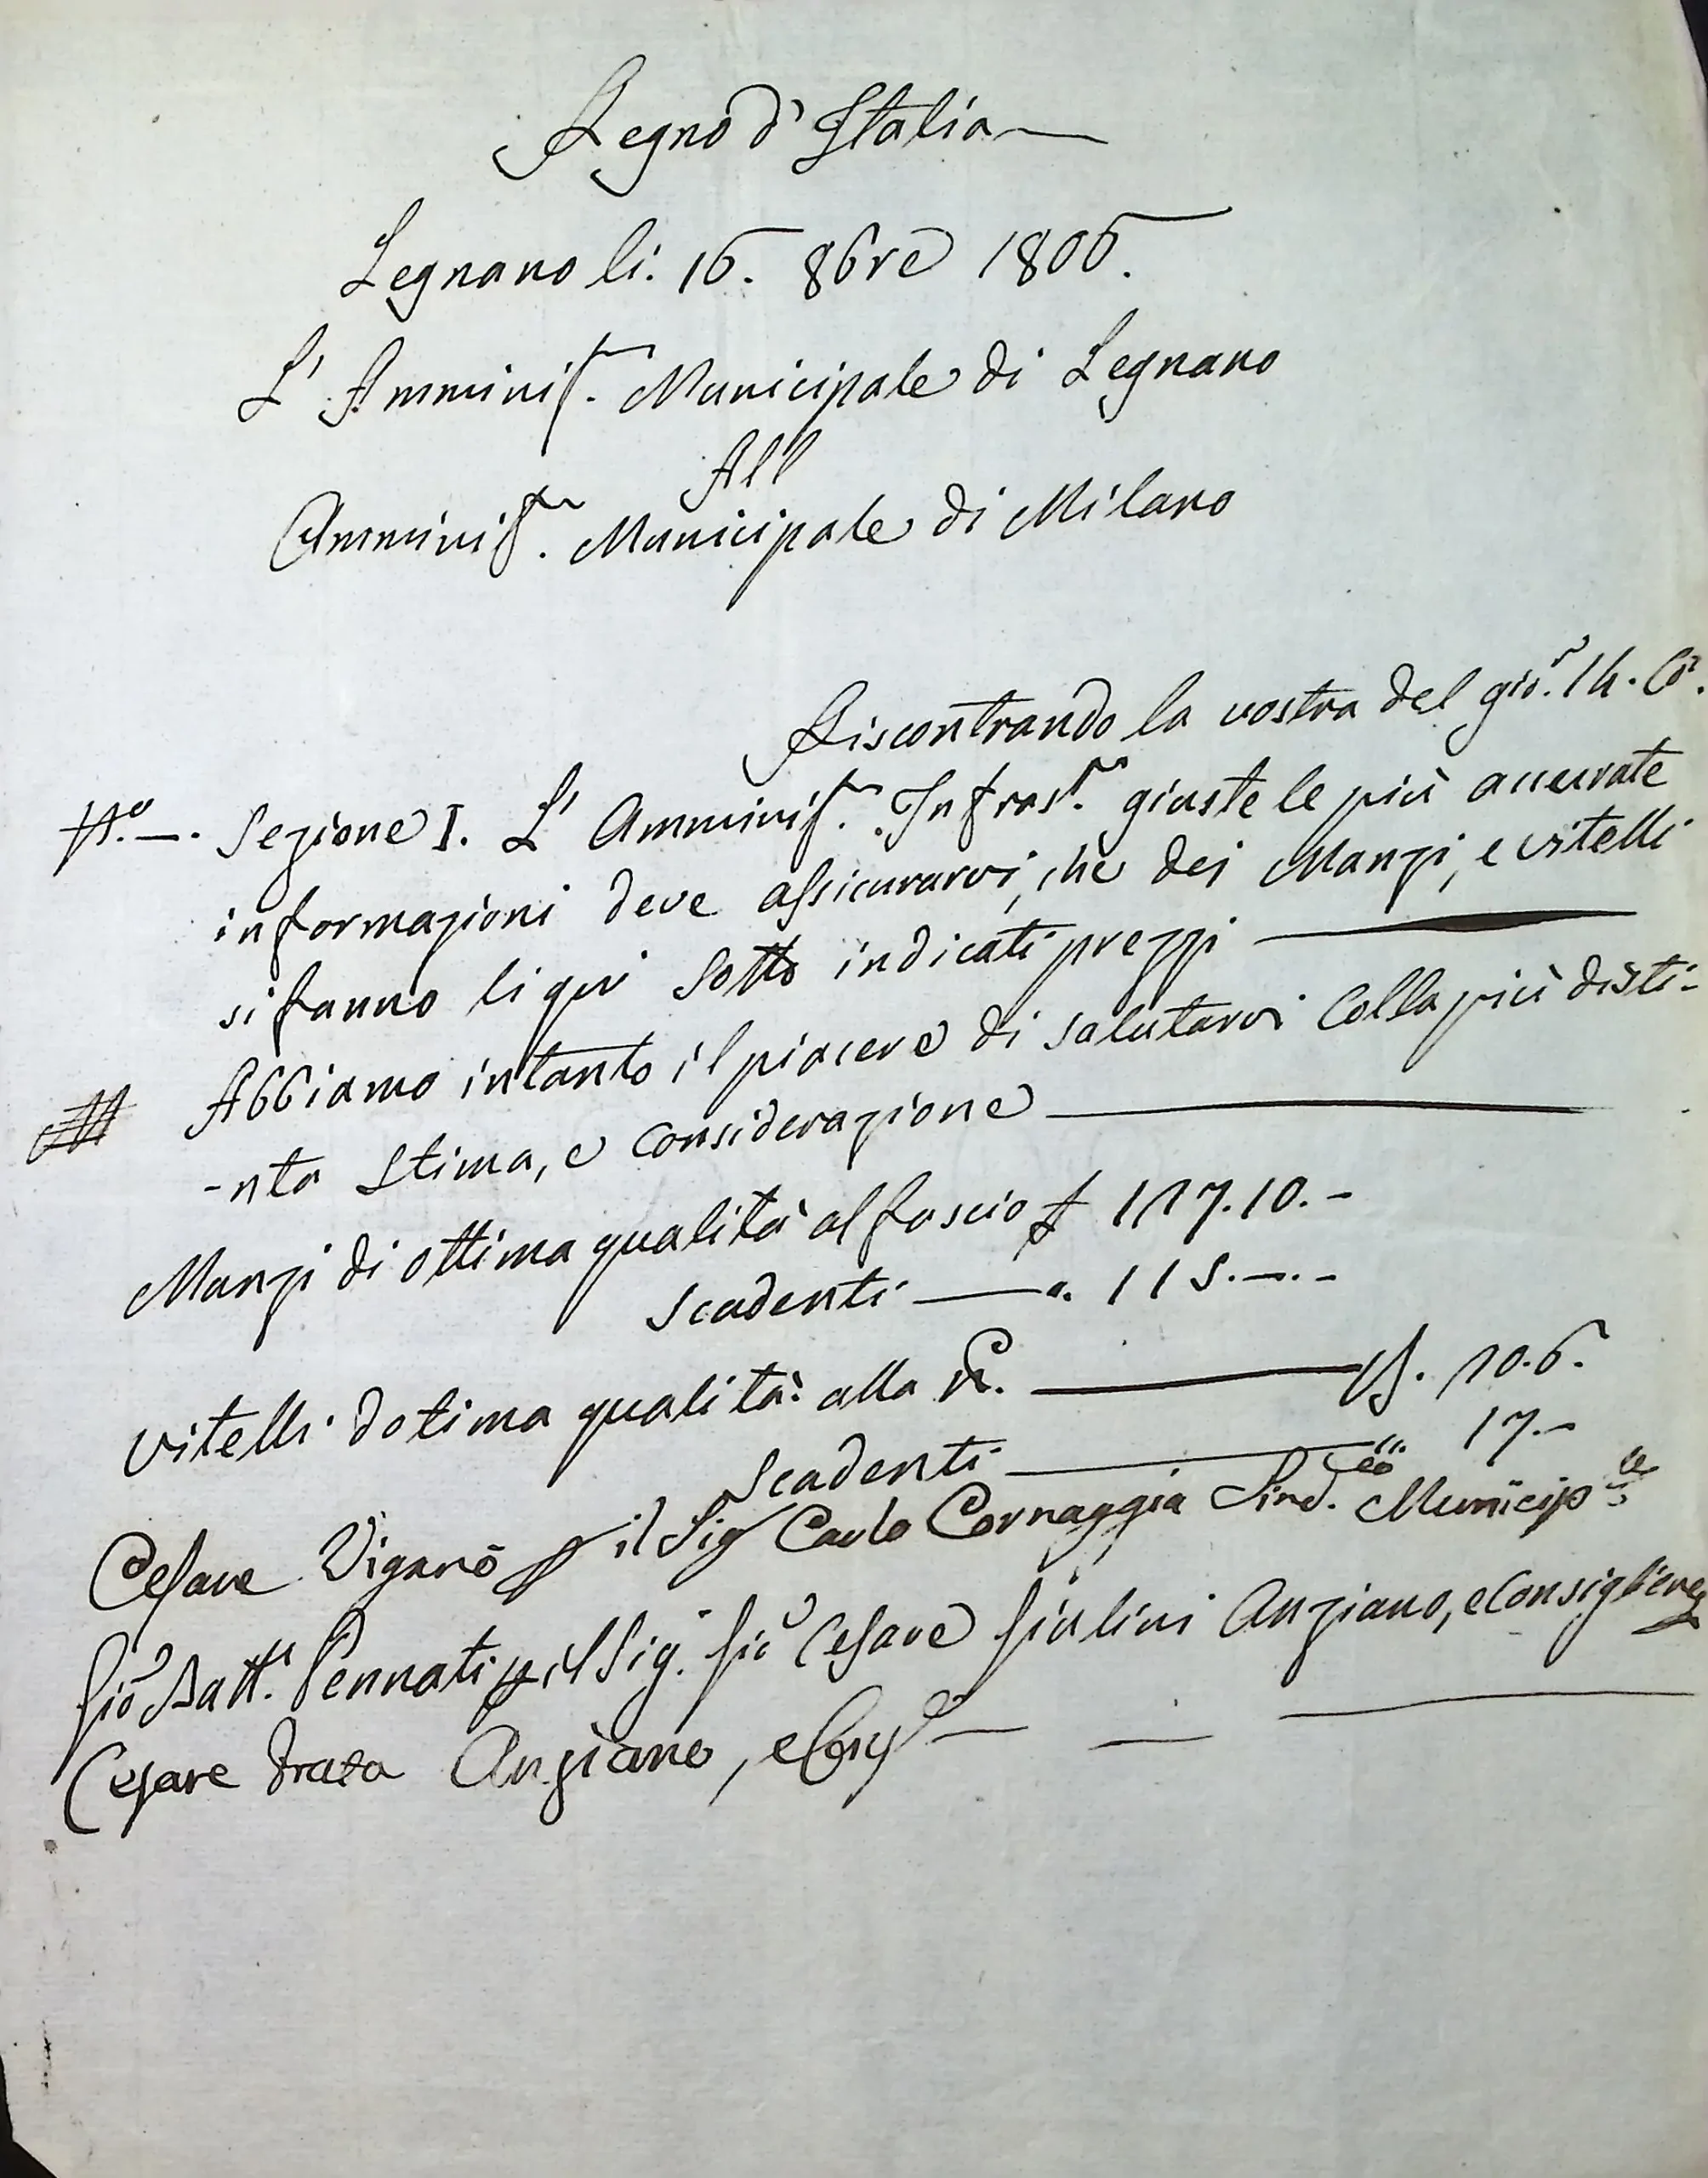 Regno d'Italia
Legnano li. 16. 8bre 1806.
L' Amminis. Municipale di Legnano
All
Amminis. Municipale di Milano
Riscontrando la vostra del gio. 14. Co.
N.o —. Sezione I. L' Amminis. Infras. giuste le più accurate
informazioni deve assicurarvi, che dei Manzi, e vitelli
si fanno li qui sotto indicati prezzi
Abbiamo intanto il piacere di salutarvi colla più disti-
-nta stima, e considerazione
Manzi di ottima qualità al fascio £ 117.10.-
scadenti — ". 115.—.-
vitelli dotima qualità alla — 10.6.
scadenti — " 17.-
Cesare Viganò p il Sig Carlo Cornaggia Sind.co Municip.le
Gio Batt.a Pennati p il Sig. Gio Cesare Giulini Anziano, e Consigliere
Cesare Prata Anziano, e Cons